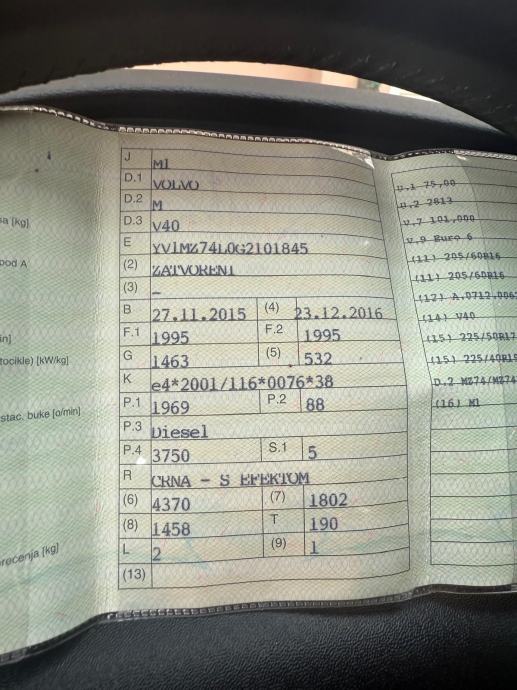 sa [kg]
pod A
in]
tocikle) [kW/kg]
stac. buke [o/min]
rećenja [kg]
J M1
D.1 VOLVO
D.2 M
D.3 V40
E YV1MZ74L0G2101845
(2) ZATVORENI
(3) –
B 27.11.2015 (4) 23.12.2016
F.1 1995 F.2 1995
G 1463 (5) 532
K e4*2001/116*0076*38
P.1 1969 P.2 88
P.3 Diesel
P.4 3750 S.1 5
R CRNA - S EFEKTOM
(6) 4370 (7) 1802
(8) 1458 T 190
L 2 (9) 1
(13)
U.1 75,00
U.2 2813
V.7 101,000
V.9 Euro 6
(11) 205/60R16
(11) 205/60R16
(12) A.0712.006
(14) V40
(15) 225/50R17
(15) 225/40R1
D.2 MZ74/MZ74
(16) M1